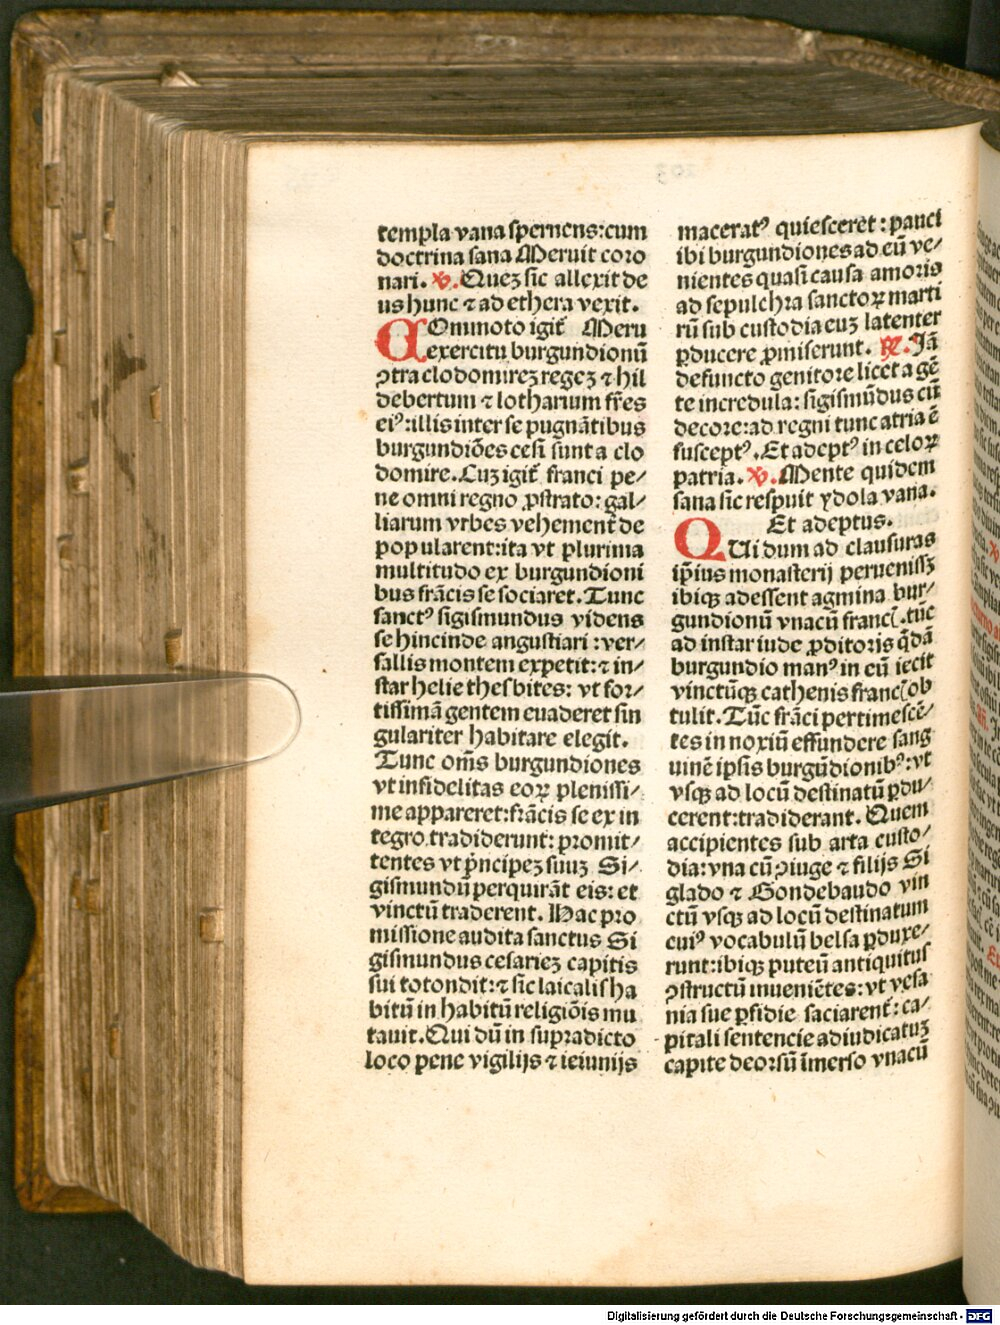 templa vana spernens:cum
doctrina sana Meruit coro
nari. v. Quez sic allexit de
us hunc ⁊ ad ethera vexit.
COmmoto igit᷑ Meru
exercitu burgundionū
ꝯtra clodomirez regez ⁊ hil
debertum ⁊ lotharium fr̄es
eiꝰ:illis inter se pugnātibus
burgundiōes cesi sunt a clo
domire. Cuz igit᷑ franci pe/
ne omni regno ꝓstrato:gal/
liarum vrbes vehement᷑ de
popularent:ita vt plurima
multitudo ex burgundioni
bus frācis se sociaret. Tunc
sanctꝰ sigismundus videns
se hincinde angustiari:ver/
sallis montem expetit:⁊ in/
star helie thesbites: vt for/
tissimā gentem euaderet sin
gulariter habitare elegit.
Tunc om̄s burgundiones
vt infidelitas eoꝝ plenissi/
me appareret:frācis se ex in
tegro tradiderunt: promit/
tentes vt pͥncipez suuz Si/
gismundū perquirāt eis: et
vinctū traderent. Hac pro
missione audita sanctus Si
gismundus cesariez capitis
sui totondit:⁊ sic laicalis ha
bitū in habitū religiōis mu
tauit. Qui dū in supradicto
loco pene vigilijs ⁊ ieiunijs
maceratꝰ quiesceret: pauci
ibi burgundiones ad eū ve/
nientes quasi causa amoris
ad sepulchra sanctoꝝ marti
rū sub custodia euz latenter
ꝑducere ꝓmiserunt. ꝶ. Jā
defuncto genitore licet a gē
te incredula: sigismūdus cū
decore:ad regni tunc atria ē
susceptꝰ. Et adeptꝰ in celoꝝ
patria. v. Mente quidem
sana sic respuit ydola vana.
Et adeptus.
QUi dum ad clausuras
ip̄ius monasterij peruenissz
ibiqꝫ adessent agmina bur/
gundionū vnacū francꝭ.tūc
ad instar iude ꝓditoris q̄dā
burgundio manꝰ in eū iecit
vinctūqꝫ cathenis francꝭ ob
tulit. Tūc frāci pertimescē/
tes innoxiū effundere sang
uinē ipsis burgūdionibꝰ:vt
vsqꝫ ad locū destinatū ꝑdu/
cerent:tradiderant. Quem
accipientes sub arta custo/
dia:vna cū ꝯiuge ⁊ filijs Gi
glado ⁊ Gondebaudo vin
ctū vsqꝫ ad locū destinatum
cuiꝰ vocabulū belsa ꝑduxe/
runt:ibiqꝫ puteū antiquitus
ꝯstructū inueniētes: vt vesa
nia sue ꝑfidie saciarent᷑: ca/
pitali sentencie adiudicatuz
capite deorsū īmerso vnacū
Digitalisierung gefördert durch die Deutsche Forschungsgemeinschaft - DFG